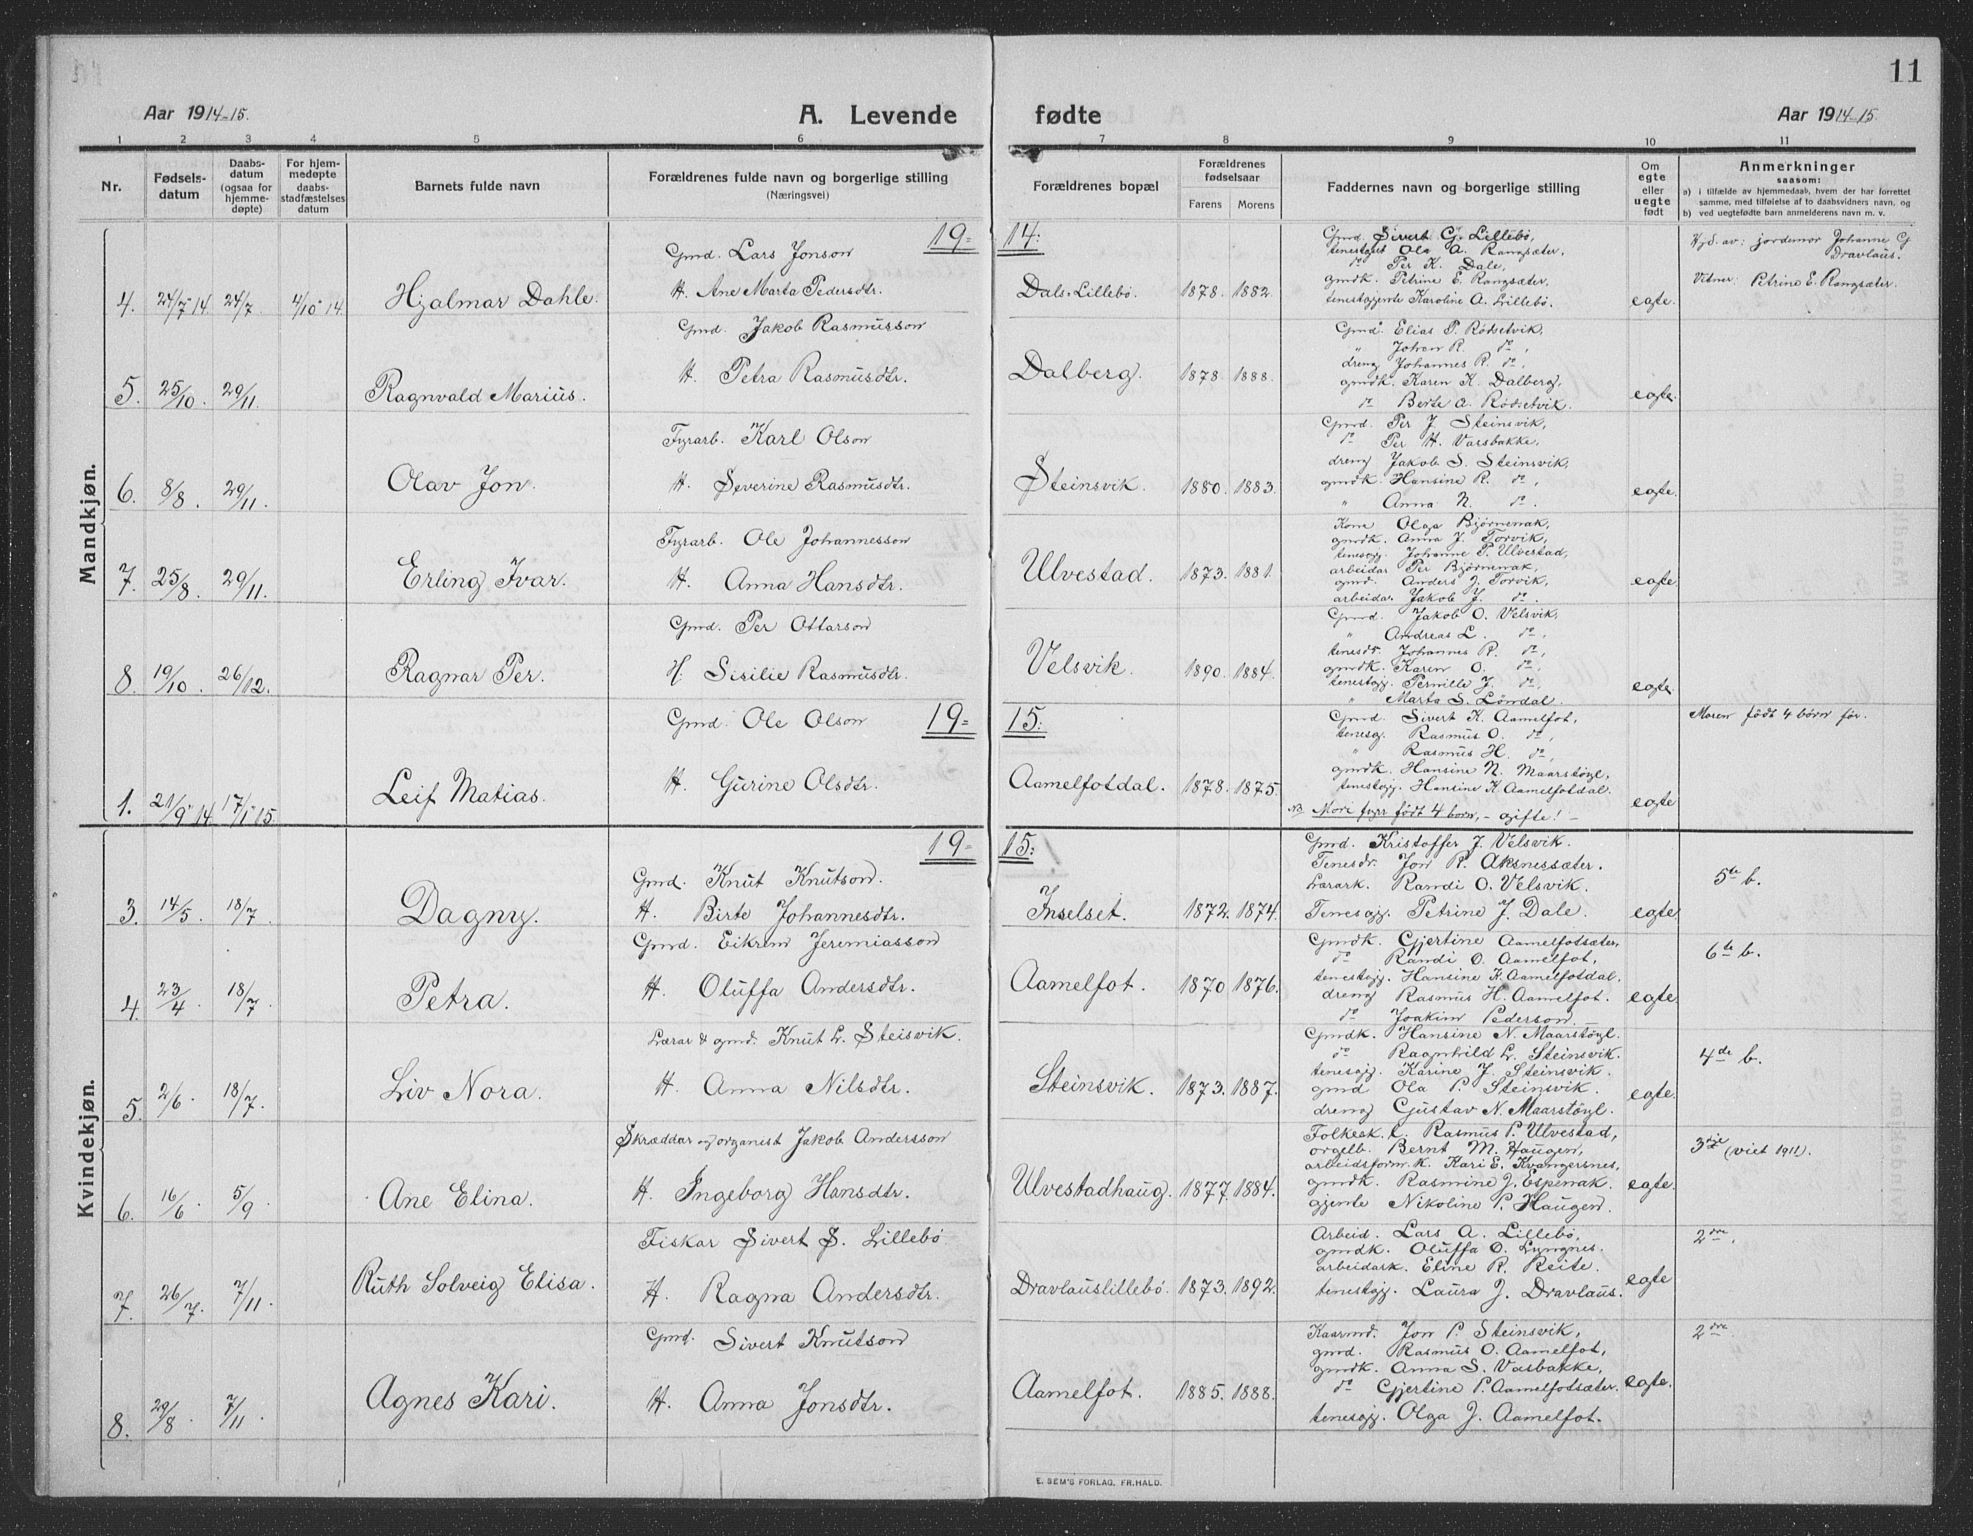 11
Aar 1914-15.
A. Levende
fødte
Aar 1914-15
1 2 3 4 5 6 7 8 9 10 11
Nr.
Fødsels-
datum
Daabs-
datum
(ogsaa for
hjemme-
døpte)
For hjem-
medøpte
daabs-
stadfæstelses
datum
Barnets fulde navn
Forældrenes fulde navn og borgerlige stilling
(Næringsvei)
Forældrenes bopæl
Forældrenes
fødselsaar
Farens Morens
Faddernes navn og borgerlige stilling
Om
egte
eller
uegte
født
Anmerkninger
saasom:
a) i tilfælde av hjemmedaab, hvem der har forrettet
samme, med tilføielse av to daabsvidners navn, og
b) ved uegtefødte barn anmelderens navn m. v.
Mandkjøn.
19- 14:
4. 24/7-14 24/7 4/10-14 Hjalmar Dahle.
Gmd. Lars Jonson
H. Ane Marta Pedersdtr.
Dals-Lillebø. 1878. 1882.
Gmd. Sivert G. Lillebø,
tenestgut Ola A. Rangsæter,
do Per K. Dale,
gmdk. Petrine E. Rangsæter,
tenestgjente Karoline A. Lillebø.
egte.
Hjd. av: jordemor Johanne G
Dravlaus.
Vitner: Petrine E. Rangsæter.
5. 25/10. 29/11. Ragnvald Marius.
Gmd. Jakob Rasmusson
H. Petra Rasmusdtr.
Dalberg. 1878. 1888.
Gmd. Elias P. Rødsetvik,
" Johan R. do,
dreng Johannes R. do,
gmdk. Karen K. Dalberg,
do Berte A. Rødsetvik.
egte.
6. 8/8. 29/11. Olav Jon.
Fyrarb. Karl Olson
H. Severine Rasmusdtr.
Steinsvik. 1880. 1883.
Gmd. Per J. Steinsvik,
do Per H. Varsbakke,
dreng Jakob S. Steinsvik,
gmdk. Hansine R. do,
" Anna N. do.
egte.
7. 25/8. 29/11. Erling Ivar.
Fyrarb. Ole Johannesson
H. Anna Hansdtr.
Ulvestad. 1873. 1881.
Kone Olga Bjørnenak,
gmdk. Anna J. Torvik,
tenesgj. Johanne P. Ulvestad,
arbeidar Per Bjørnenak,
gmd. Anders J. Torvik,
arbeidar. Jakob J. do.
egte.
8. 19/10. 26/12. Ragnar Per.
Gmd. Per Ottarson
H. Sisilie Rasmusdtr.
Velsvik. 1890. 1884.
Gmd. Jakob O. Velsvik,
" Andreas L. do,
tenesdr. Johannes R. do,
gmdk. Karen O. do,
tenestgj. Pernille J. do,
" Marta S. Løndal.
egte.
19- 15:
1. 21/9-14 17/1-15. Leif Matias.
Gmd. Ole Olson
H. Gurine Olsdtr.
Aamelfotdal. 1878. 1875.
Gmd. Sivert K. Aamelfot,
tenesg. Rasmus O. do,
" Rasmus H. do,
gmdk. Hansine N. Maarstøyl,
tenestgj. Hansine K. Aamelfotdal.
NB Mori fyrr født 4 born, - gifte! -
egte
Moren født 4 børn før.
Kvindekjøn.
19- 15:
3. 14/5. 18/7. Dagny.
Gmd. Knut Knutson.
H. Birte Johannesdtr.
Inselset. 1872. 1874.
Gmd. Kristoffer J. Velsvik.
Tenesdr. Jon R. Aksnessæter.
Lærark. Randi O. Velsvik.
Tenesgj. Petrine J. Dale.
egte.
5te b.
4. 23/4. 18/7. Petra.
Gmd. Eikrem Jeremiasson
H. Oluffa Andersdtr.
Aamelfot. 1870 1876.
Gmdk. Gjertine Aamelfotsæter,
do Randi O. Aamelfot,
tenestgj. Hansine K. Aamelfotdal.
dreng Rasmus H. Aamelfot.
do Joakim Pederson
egte
6te b.
5. 2/6. 18/7. Liv Nora.
Lærar & gmd. Knut L. Steisvik.
H. Anna Nilsdtr.
Steinsvik. 1873. 1887.
Gmdk. Hansine N. Maarstøyl.
do Ragnhild L. Steinsvik.
tenesgj. Karine J. Steinsvik.
gmd Ola P. Steinsvik.
dreng Gustav N. Maarstøyl.
egte.
4de b.
6. 16/6. 5/9. Ane Elina.
Skræddar og organist Jakob Andersson
H. Ingeborg Hansdtr.
Ulvestadhaug. 1877. 1884.
Folkesk. l. Rasmus P. Ulvestad,
orgelb. Bernt M. Haugen,
arbeidsform. k. Kari E. Kvangersnes,
gmdk. Rasmine J. Espenak.
gjente Nikoline P. Haugen.
egte.
3dje (viet 1911).
7. 26/7. 7/11. Ruth Solveig Elisa.
Fiskar Sivert S. Lillebø
H. Ragna Andersdtr.
Dravlauslillebø. 1873. 1892.
Arbeid. Lars A. Lillebø,
gmdk. Oluffa O. Lyngnes.
arbeidark. Eline R. Reite.
tenestgj. Laura J. Dravlaus.
egte
2dre.
8. 29/8. 7/11. Agnes Kari.
Gmd. Sivert Knutson
H. Anna Jonsdtr.
Aamelfot. 1885. 1888.
Kaarmd. Jon P. Steinsvik,
gmd. Rasmus O. Aamelfot,
gmdk. Anna S. Varbakke,
do Gjertine P. Aamelfotsæter.
tenesgj. Olga J. Aamelfot.
egte.
2dre
E. SEM'S FORLAG, FR.HALD.